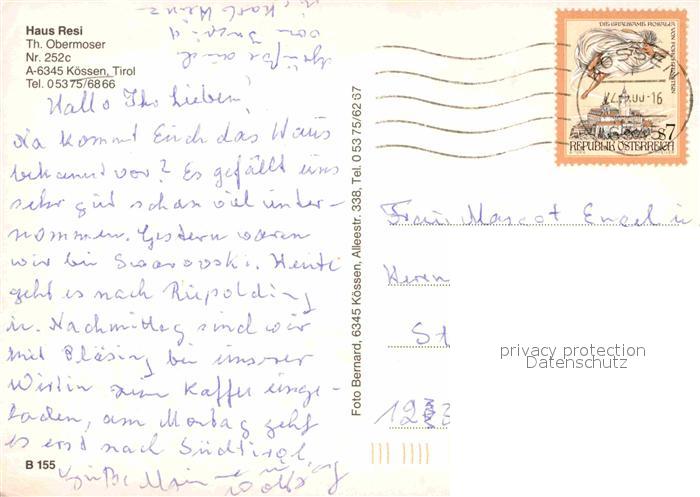 Haus Resi
Th. Obermoser
Nr. 252c
A-6345 Kössen, Tirol
Tel. 05375/6866
Hallo Ihr Lieben!
Na kommt Euch das Haus
bekannt vor? Es gefällt uns
sehr gut schon viel unter-
nommen. Gestern waren
wir bei Swarovski. Heute
geht es nach Ruepolding
u. Nachmittag sind wir
mit Bläsing bei unserer
Wirtin zum Kaffee einge-
laden, am Montag geht
es erst nach Südtirol.
Grüße
Grüße auch
von
Karl Heinz
B 155
Foto Bernard, 6345 Kössen, Alleestr. 338, Tel. 0 53 75/62 87
DIE GRAUSAME ROSALIA
VON FORCHTENSTEIN
KÖSSEN
-16
S7
REPUBLIK ÖSTERREICH
Frau Mascot Engel u.
Herrn
St
privacy protection
Datenschutz